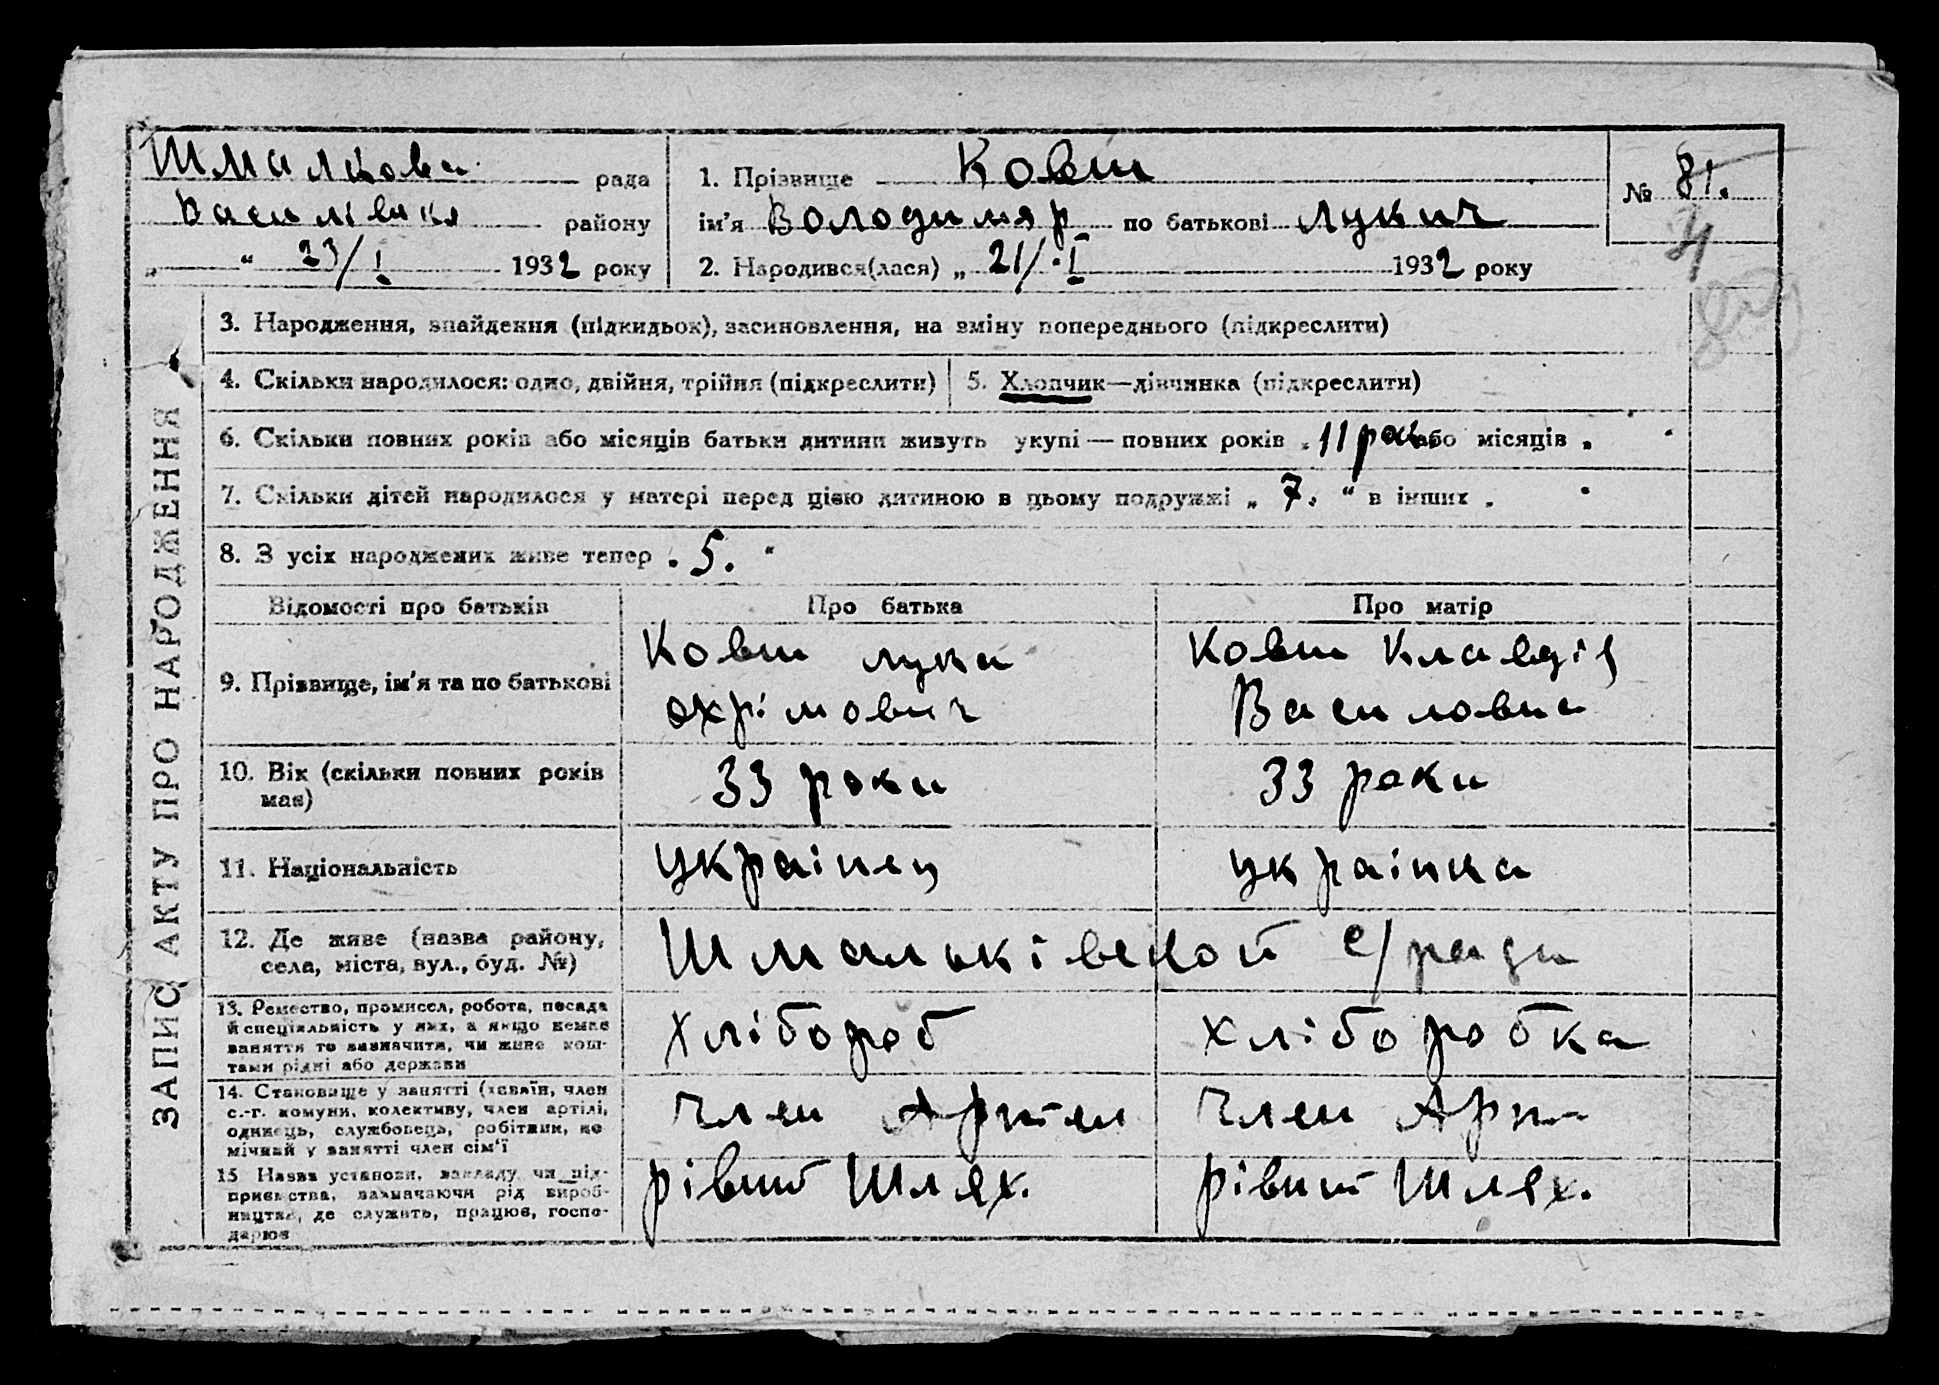 ЗАПИС АКТУ ПРО НАРОДЖЕННЯ
Шмалкова рада
Василівка району
„ “ 23/I 1932 року
1. Прізвище Ковш
ім'я Володимяр по батькові Лукич
2. Народився(лася) „ 21/I 1932 року
№ 81.
3. Народження, знайдення (підкидьок), засиновлення, на зміну попереднього (підкреслити)
4. Скільки народилося: одно, двійня, трійня (підкреслити)
5. Хлопчик—дівчинка (підкреслити)
6. Скільки повних років або місяців батьки дитини живуть укупі — повних років 11 рок. або місяців
7. Скільки дітей народилося у матері перед цією дитиною в цьому подружжі „ 7. “ в інших
8. З усіх народжених живе тепер 5.
Відомості про батьків Про батька Про матір
9. Прізвище, ім'я та по батькові
Ковш Лука
Охрімович
Ковш Клавдія
Василовна
10. Вік (скільки повних років
має)
33 роки
33 роки
11. Національність
українец
українка
12. Де живе (назва району,
села, міста, вул., буд. №)
Шмальківской с/ради
13. Ремество, промисел, робота, посада
й спеціяльність у них, а якщо немає
заняття то визначити, чи живе кош-
тами рідні або держави
Хлібороб
хліборобка
14. Становище у занятті (хазяїн, член
с.-г. комуни, колективу, член артілі,
одинець, службовець, робітник, по
мічний у занятті член сім'ї
Член Артел
Член Арт
15 Назва установи, закладу, чи під-
приємства, зазначаючи рід вироб-
ництва, де служить, працює, госпо-
дарює
рівний Шлях.
рівний Шлях.